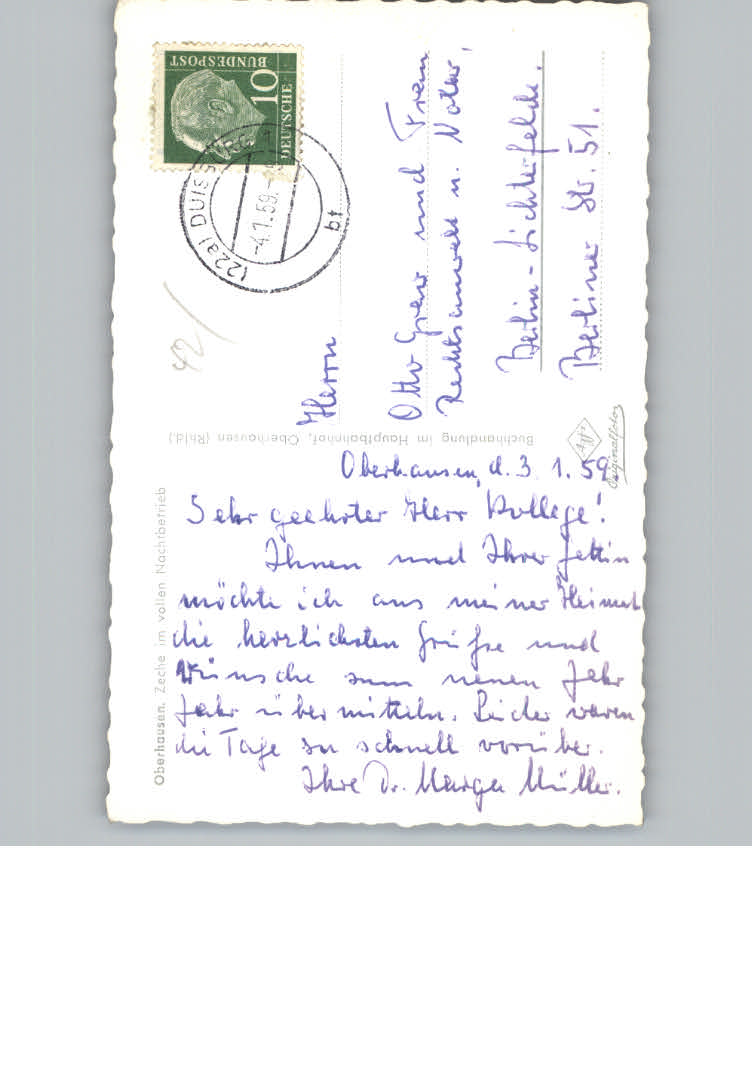 Oberhausen, d. 3. 1. 59.
Sehr geehrter Herr Kollege!
Ihnen und Ihrer Gattin
möchte ich aus meiner Heimat
die herzlichsten Grüße und
Wünsche zum neuen Jahr
Jahr übermitteln. Leider waren
die Tage so schnell vorüber.
Ihre Dr. Marga Müller.
Herrn
Otto und Frau
Rechtsanwalt u. Notar,
Berlin-Lichterfelde.
Berliner Str. 51.
DEUTSCHE
BUNDESPOST
10
(22a) DUISBURG
-4.1.59.-
bt
42/
Buchhandlung im Hauptbahnhof, Oberhausen (Rhld.)
Agfa
Originalfoto
Oberhausen. Zeche im vollen Nachtbetrieb